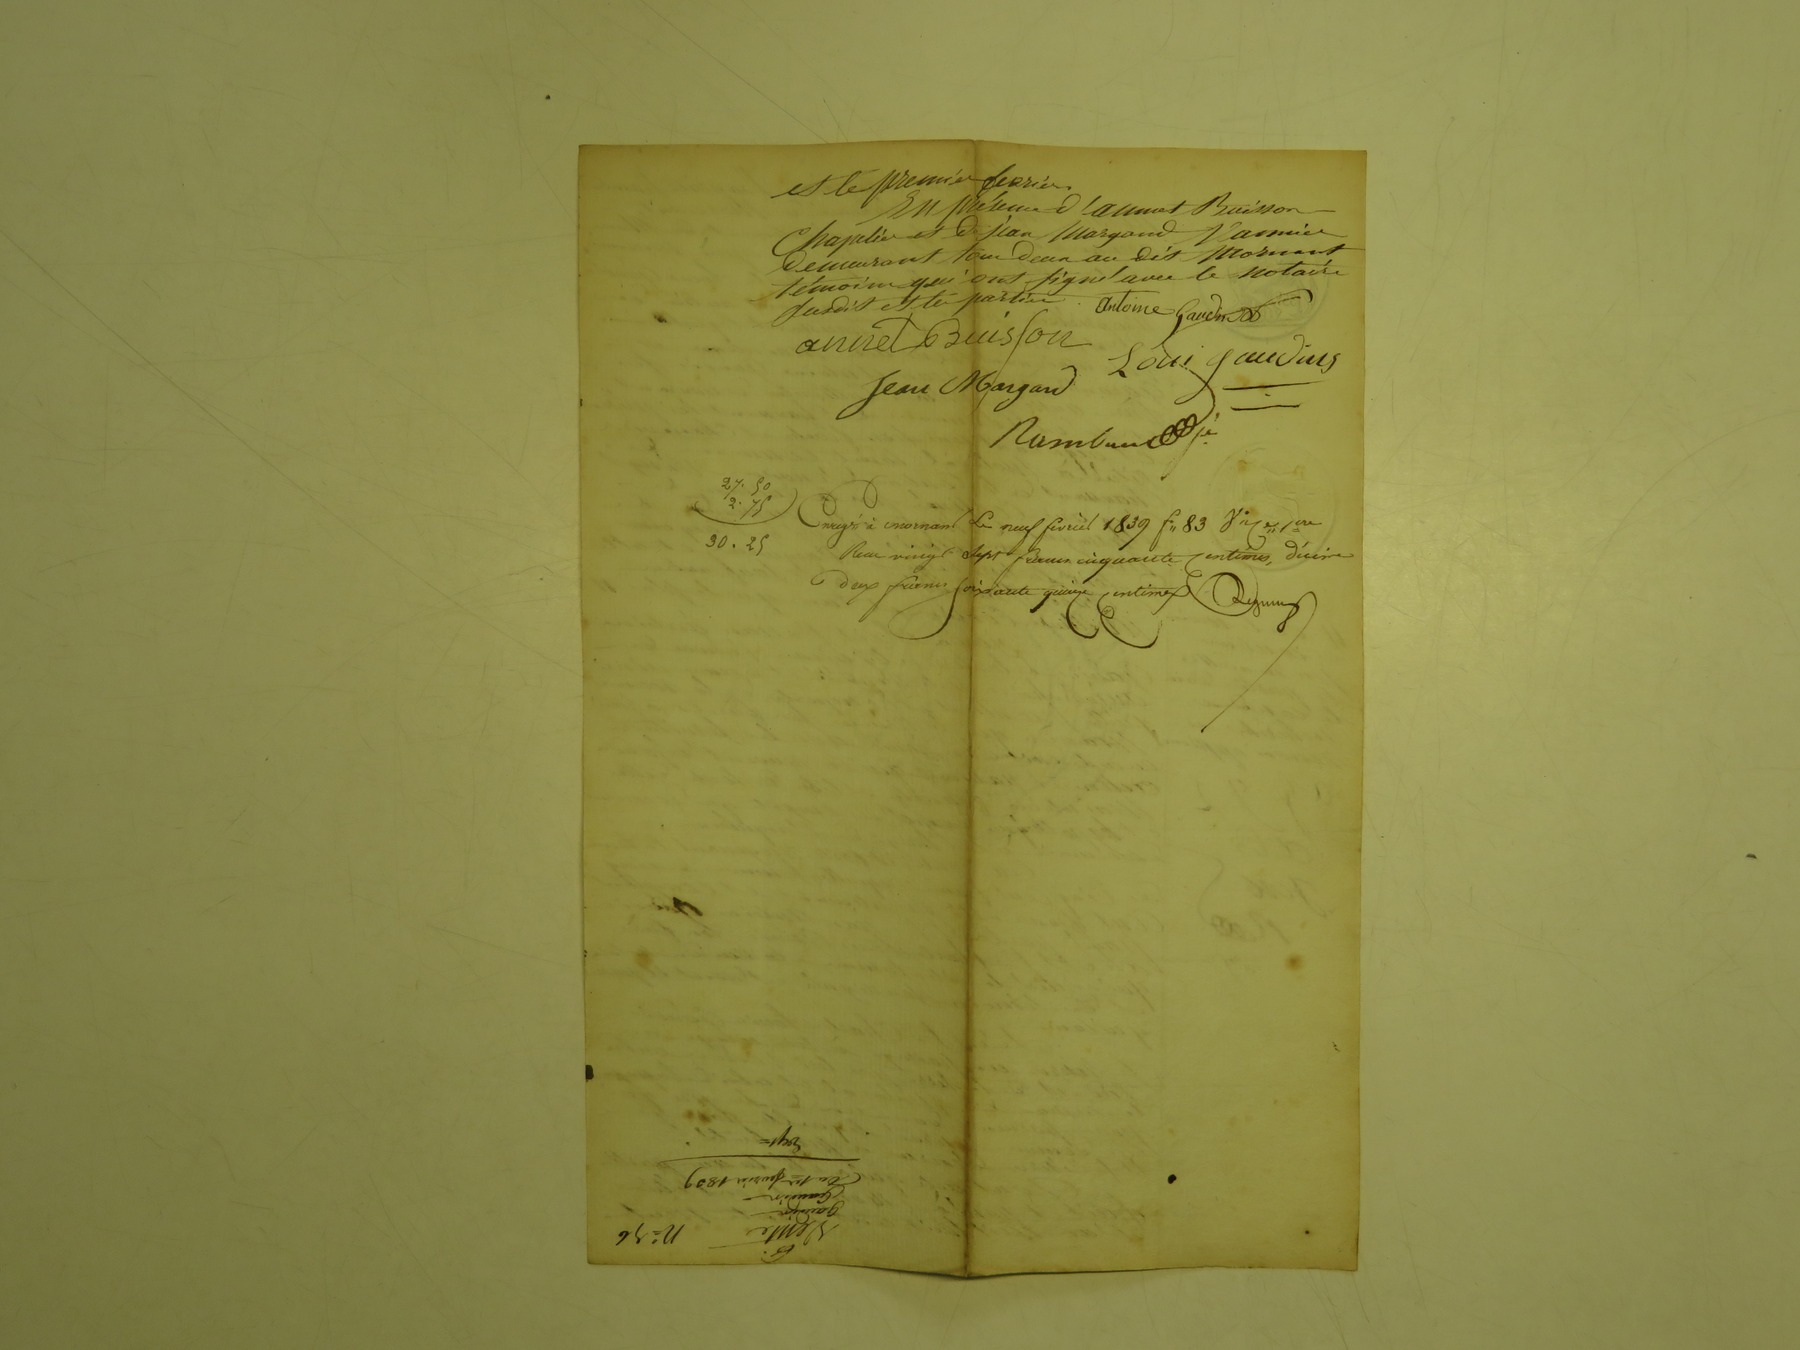 et le premier fevrier.
En présence d'annet Buisson
Chapelier et de jean Margand
demeurant tous deux au dit Mornant
témoins qui ont signé avec le notaire
susdit et les parties.
antoine Gaudin
annet Buisson
Loui gaudins
Jean Margand
27. 50
2. 75
30. 25
Enregé à mornant le neuf fevrier 1839 f° 83
Reçu vingt sept francs cinquante centimes, décime
deux francs soixante quinze centimes
N° 36
Vente
gaudin
Gaudin
Du 1er fevrier 1839